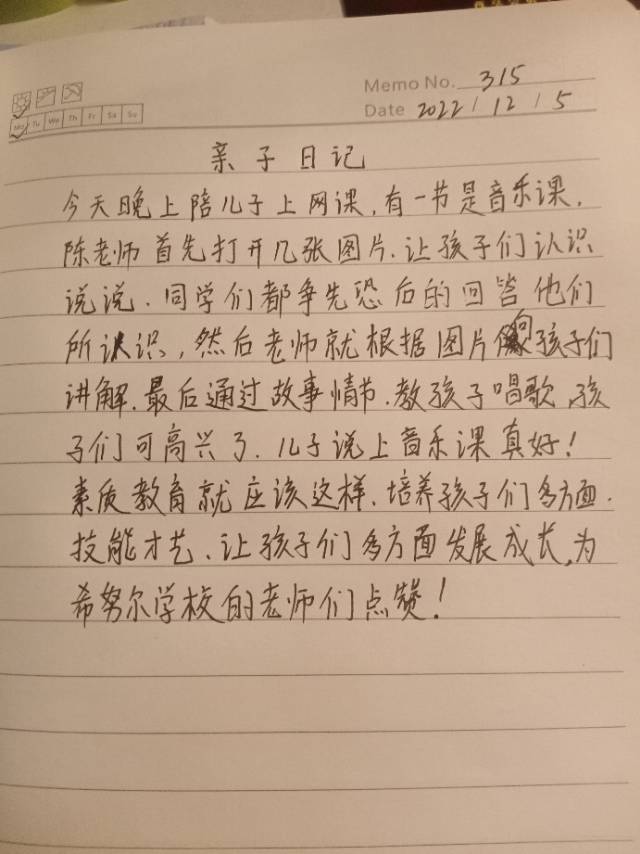 Memo No. 315
Mo Tu We Th Fr Sa Su
Date 2022 / 12 / 5
亲子日记
今天晚上陪儿子上网课,有一节是音乐课,
陈老师首先打开几张图片.让孩子们认识
说说.同学们都争先恐后的回答他们
所认识,然后老师就根据图片向孩子们
讲解.最后通过故事情节.教孩子唱歌,孩
子们可高兴了.儿子说上音乐课真好!
素质教育就应该这样.培养孩子们多方面.
技能才艺、让孩子们多方面发展成长,为
希努尔学校的老师们点赞!